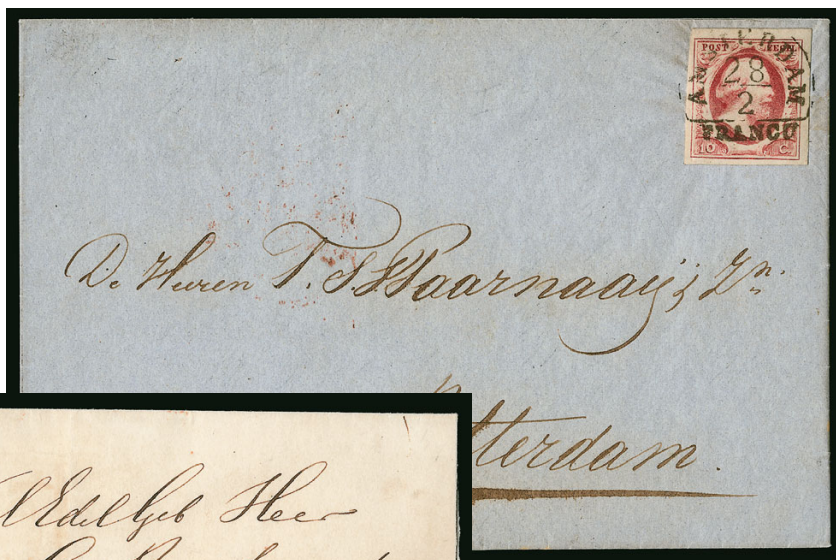 POST ZEGEL
AMSTERDAM
28
2
FRANCO
10 C.
De Heeren T. S. Paarnaaij & Zn.
tterdam.
WelEdelGeb Heer